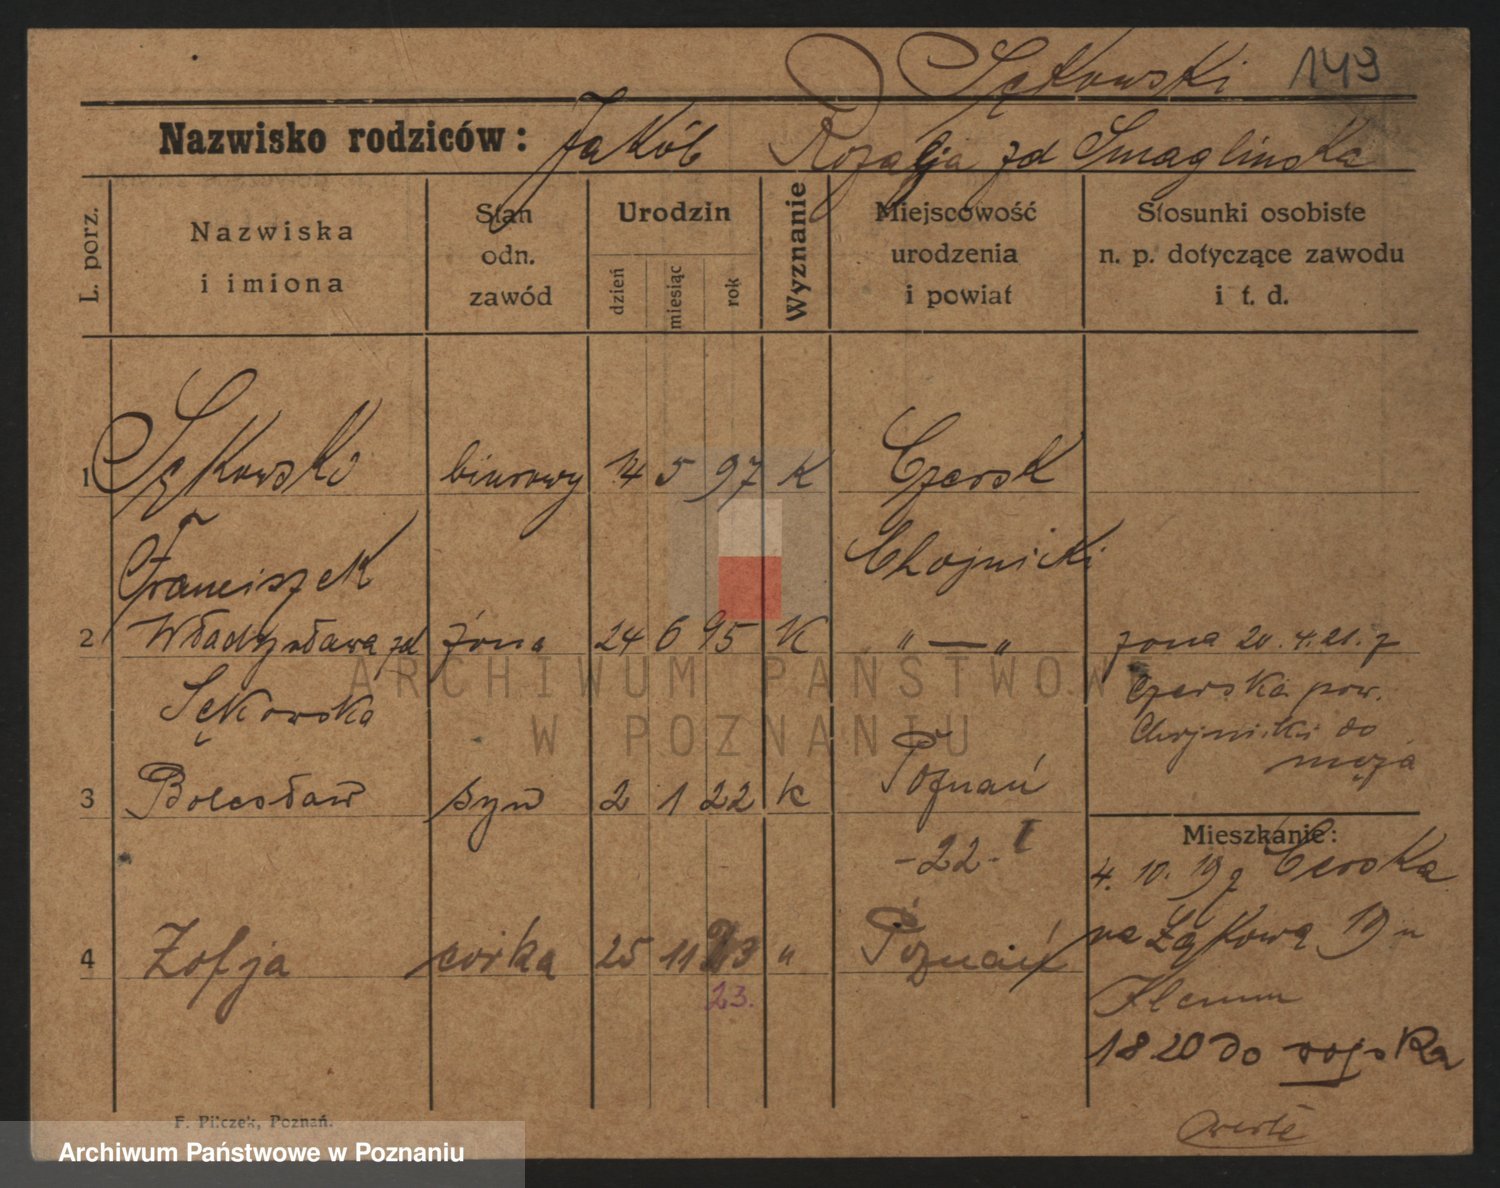 Sękowski 149
Nazwisko rodziców: Jakób Rozalja zd Smaglinska
L. porz.
Nazwiska
i imiona
Stan
odn.
zawód
Urodzin
dzień
miesiąc
rok
Wyznanie
Miejscowość
urodzenia
i powiat
Stosunki osobiste
n. p. dotyczące zawodu
i t. d.
1 Sękowski biurowy 14 5 97 K Czersk
Franciszek Chojnicki
2 Władysława zd żona 24 6 95 K " — " żona 20. 4. 21. z
Sękowska Czerska pow.
Chojnicki do
męża
3 Bolesław syn 2 1 22 K Poznań
- 22 - I
Mieszkanie:
4. 10. 19 z Czerska
4 Zofja córka 25 11 23 " Poznań na Łąkową 19 u
23.
Klemm
1 8 20 do wojska
verte
F. Pilczek, Poznań.
ARCHIWUM PAŃSTWOWE
W POZNANIU
Archiwum Państwowe w Poznaniu